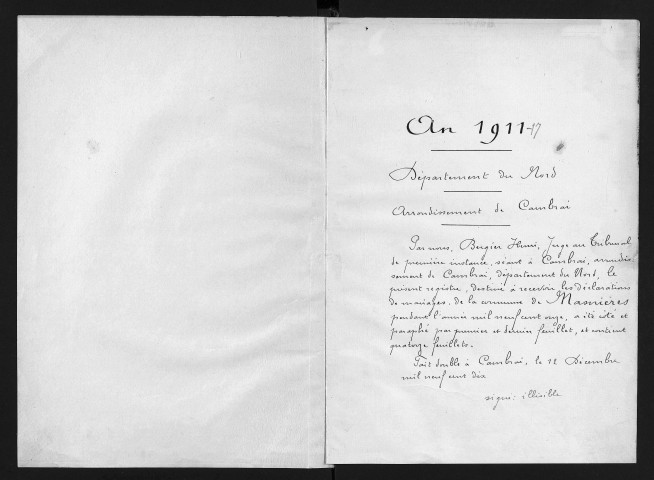 An 1911-17
Département du Nord
Arrondissement de Cambrai
Par nous, Bergier Henri, Juge au Tribunal
de première instance, séant à Cambrai, arrondis
sement de Cambrai, département du Nord, le
présent registre, destiné à recevoir les déclarations
de mariages, de la commune de Masnières
pendant l'année mil neuf cent onze, a été coté et
paraphé par premier et dernier feuillet, et contient
quatorze feuillets.
Fait double à Cambrai, le 12 Décembre
mil neuf cent dix
signé: illisible